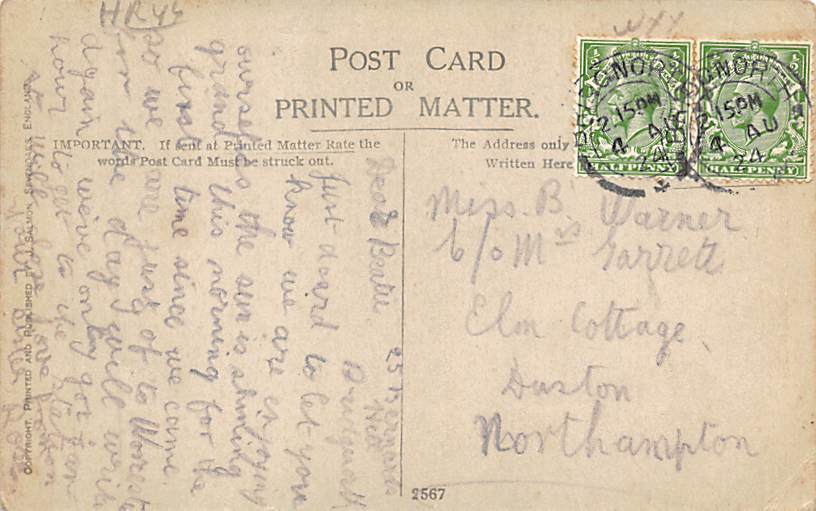 HR44
POST CARD
OR
PRINTED MATTER.
IMPORTANT. If sent at Printed Matter Rate the
words Post Card Must be struck out.
The Address only
Written Here
HALFPENNY
HALFPENNY
2.15PM
4 AU
24
15PM
4 AU
24
Miss. B. Warner
c/o Mrs Garrett
Elm Cottage
Duston
Northampton
25 Bernards
Hill
Bridgnorth
Dear Beatie
Just a card to let you
know we are enjoying
ourselves the sun is shining
grand this morning for the
first time since we came.
so we are just of to
for the day I will write
again we've only got an
hour to get to the
love from
COPYRIGHT, PRINTED AND PUBLISHED BY J. SALMON, SEVENOAKS, ENGLAND
2567